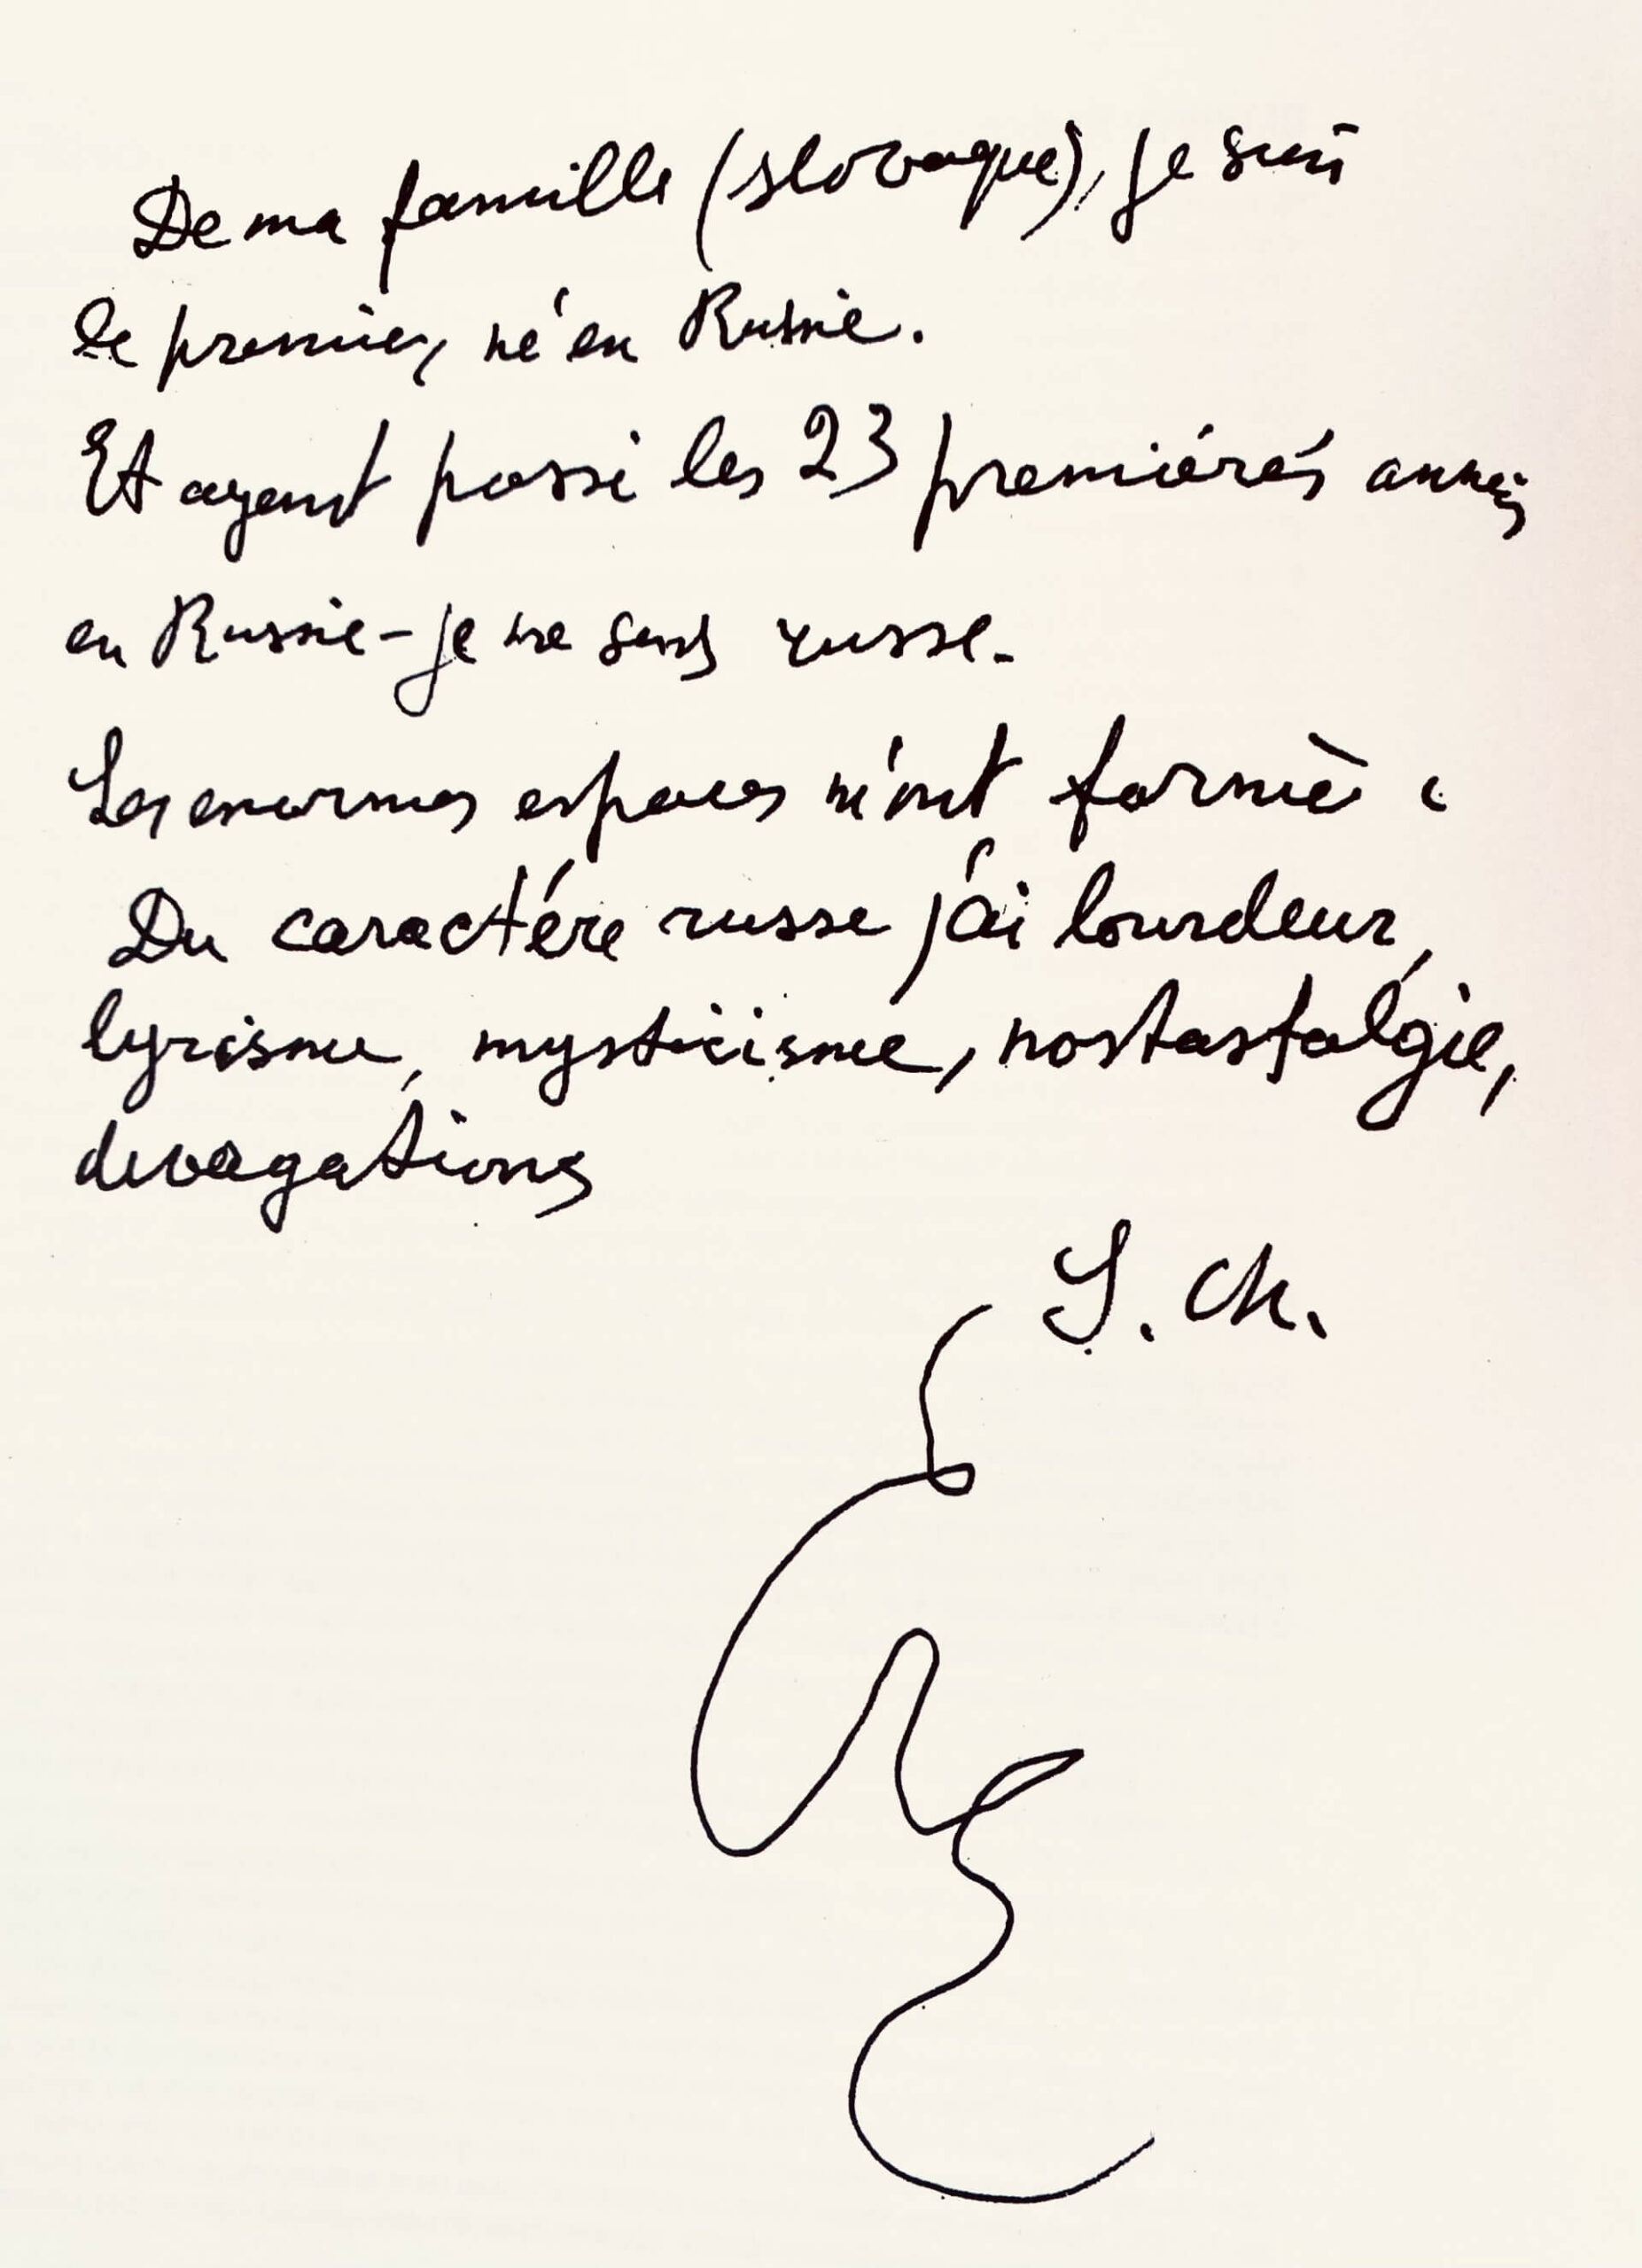 De ma famille (slovaque), je suis
le premier, né en Russie.
Et ayant passé les 23 premiéres années
en Russie - je me sens russe.
Les enormes espaces m'ont formè :
Du caractére russe j'ai lourdeur,
lyrisme, mysticisme, nostastalgie,
devagations
S. Ch.